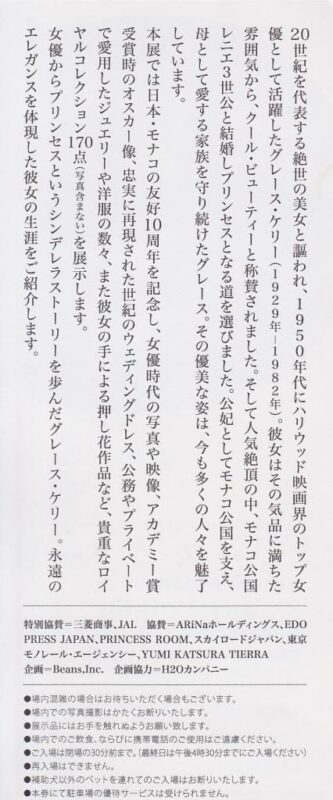 20世紀を代表する絶世の美女と謳われ、1950年代にハリウッド映画界のトップ女
優として活躍したグレース・ケリー(1929年－1982年)。彼女はその気品に満ちた
雰囲気から、クール・ビューティーと称賛されました。そして人気絶頂の中、モナコ公国
レニエ3世公と結婚しプリンセスとなる道を選びました。公妃としてモナコ公国を支え、
母として愛する家族を守り続けたグレース。その優美な姿は、今も多くの人々を魅了
しています。
本展では日本・モナコの友好10周年を記念し、女優時代の写真や映像、アカデミー賞
受賞時のオスカー像、忠実に再現された世紀のウェディングドレス、公務やプライベート
で愛用したジュエリーや洋服の数々、また彼女の手による押し花作品など、貴重なロイ
ヤルコレクション170点(写真含まない)を展示します。
女優からプリンセスというシンデレラストーリーを歩んだグレース・ケリー。永遠の
エレガンスを体現した彼女の生涯をご紹介します。
特別協賛＝三菱商事、JAL 協賛＝ARiNaホールディングス、EDO
PRESS JAPAN、PRINCESS ROOM、スカイロードジャパン、東京
モノレール・エージェンシー、YUMI KATSURA TIERRA
企画＝Beans,Inc. 企画協力＝H2Oカンパニー
●場内混雑の場合はお待ちいただく場合もございます。
●場内での写真撮影はかたくお断りいたします。
●展示品にはお手を触れぬようお願い致します。
●場内でのご飲食、ならびに携帯電話のご使用はご遠慮ください。
●ご入場は閉場の30分前まで。(最終日は午後4時30分までにご入場ください)
●再入場はできません。
●補助犬以外のペットを連れてのご入場はお断りいたします。
●本券にて駐車場の優待サービスは受けられません。